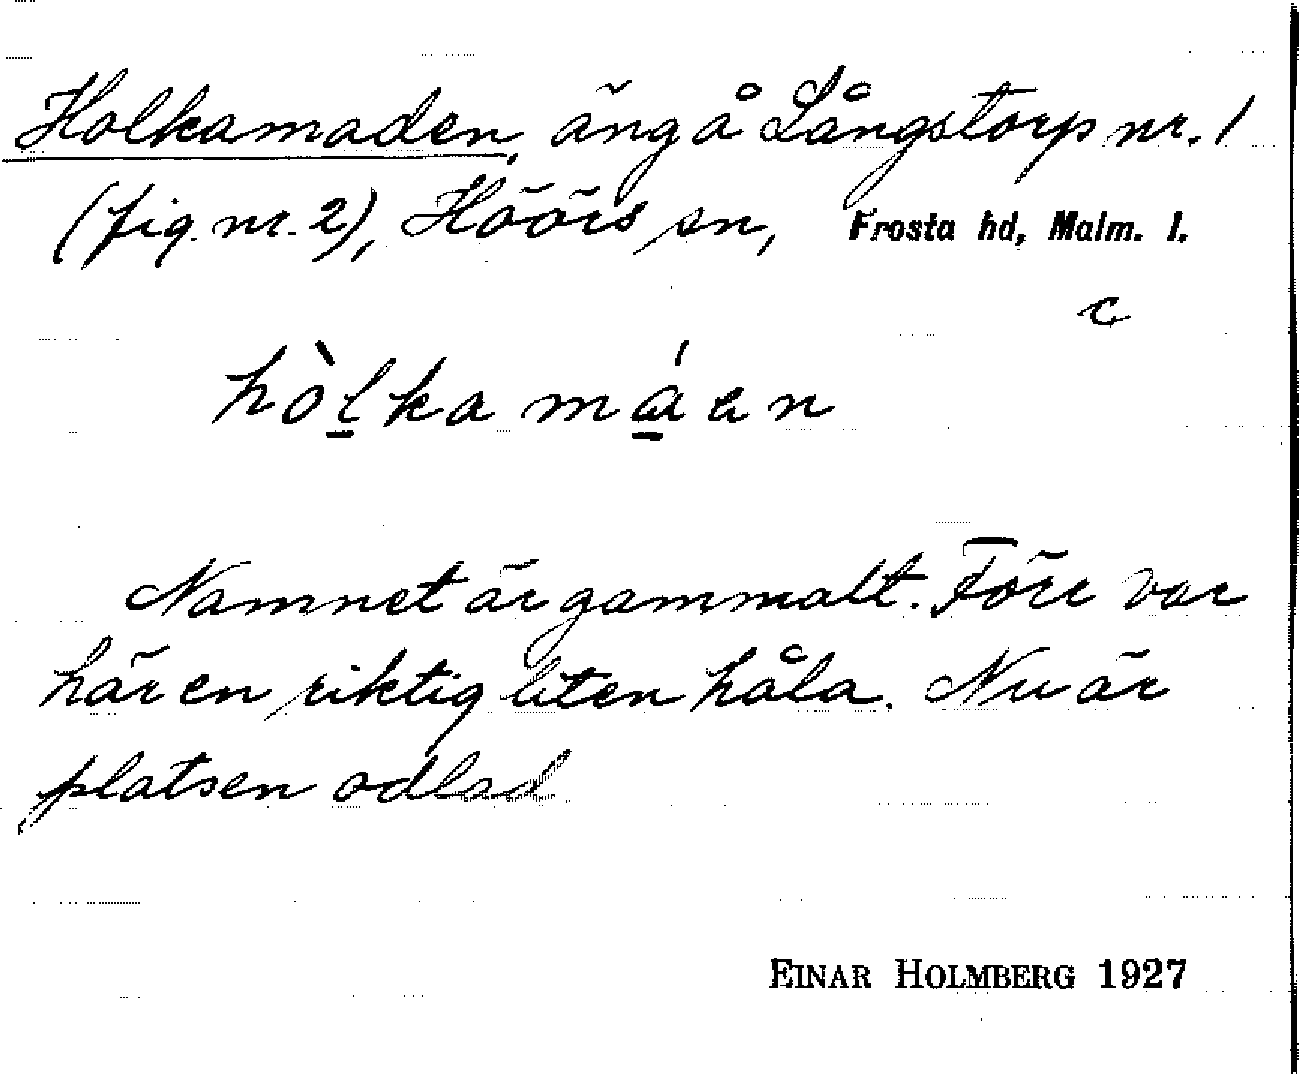 Holkamaden, äng å Långstorp nr. 1
(fig. nr. 2), Höörs sn, Frosta hd, Malm. l.
c
hòl̲kamá̲en
Namnet är gammalt. Förr var
här en riktig liten håla. Nu är
platsen odlad
EINAR HOLMBERG 1927